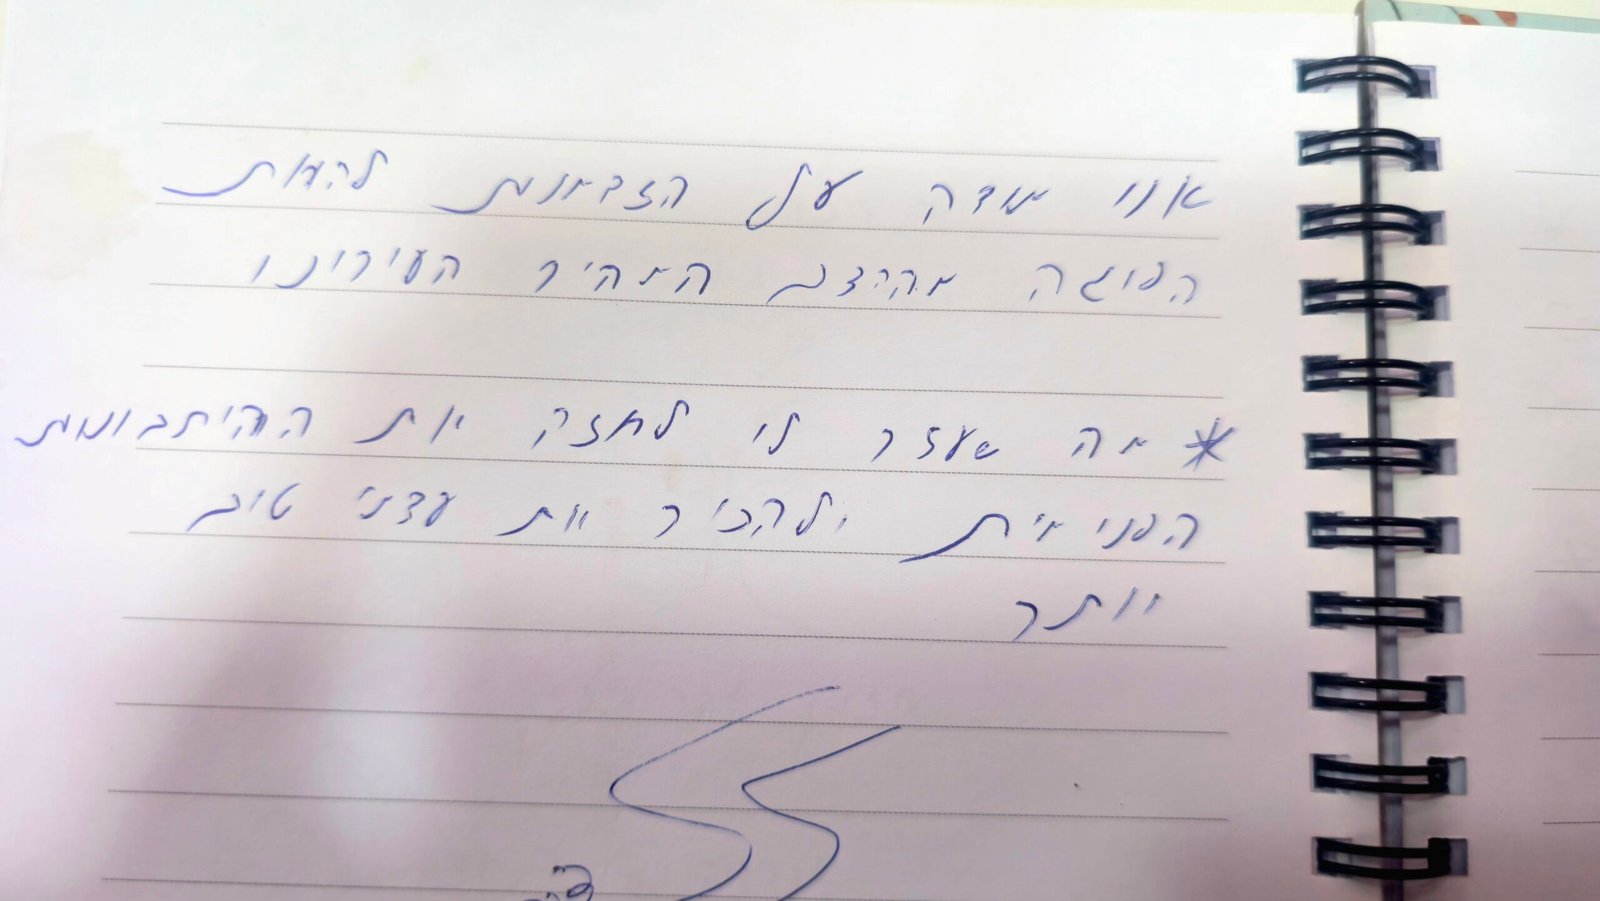 אני מודה על הזדמנות להיות
הפוגה מהקצב המהיר העירוני
* מה שעזר לי לחזק את ההתבוננות
הפנימית ולהכיר את עצמי טוב
יותר